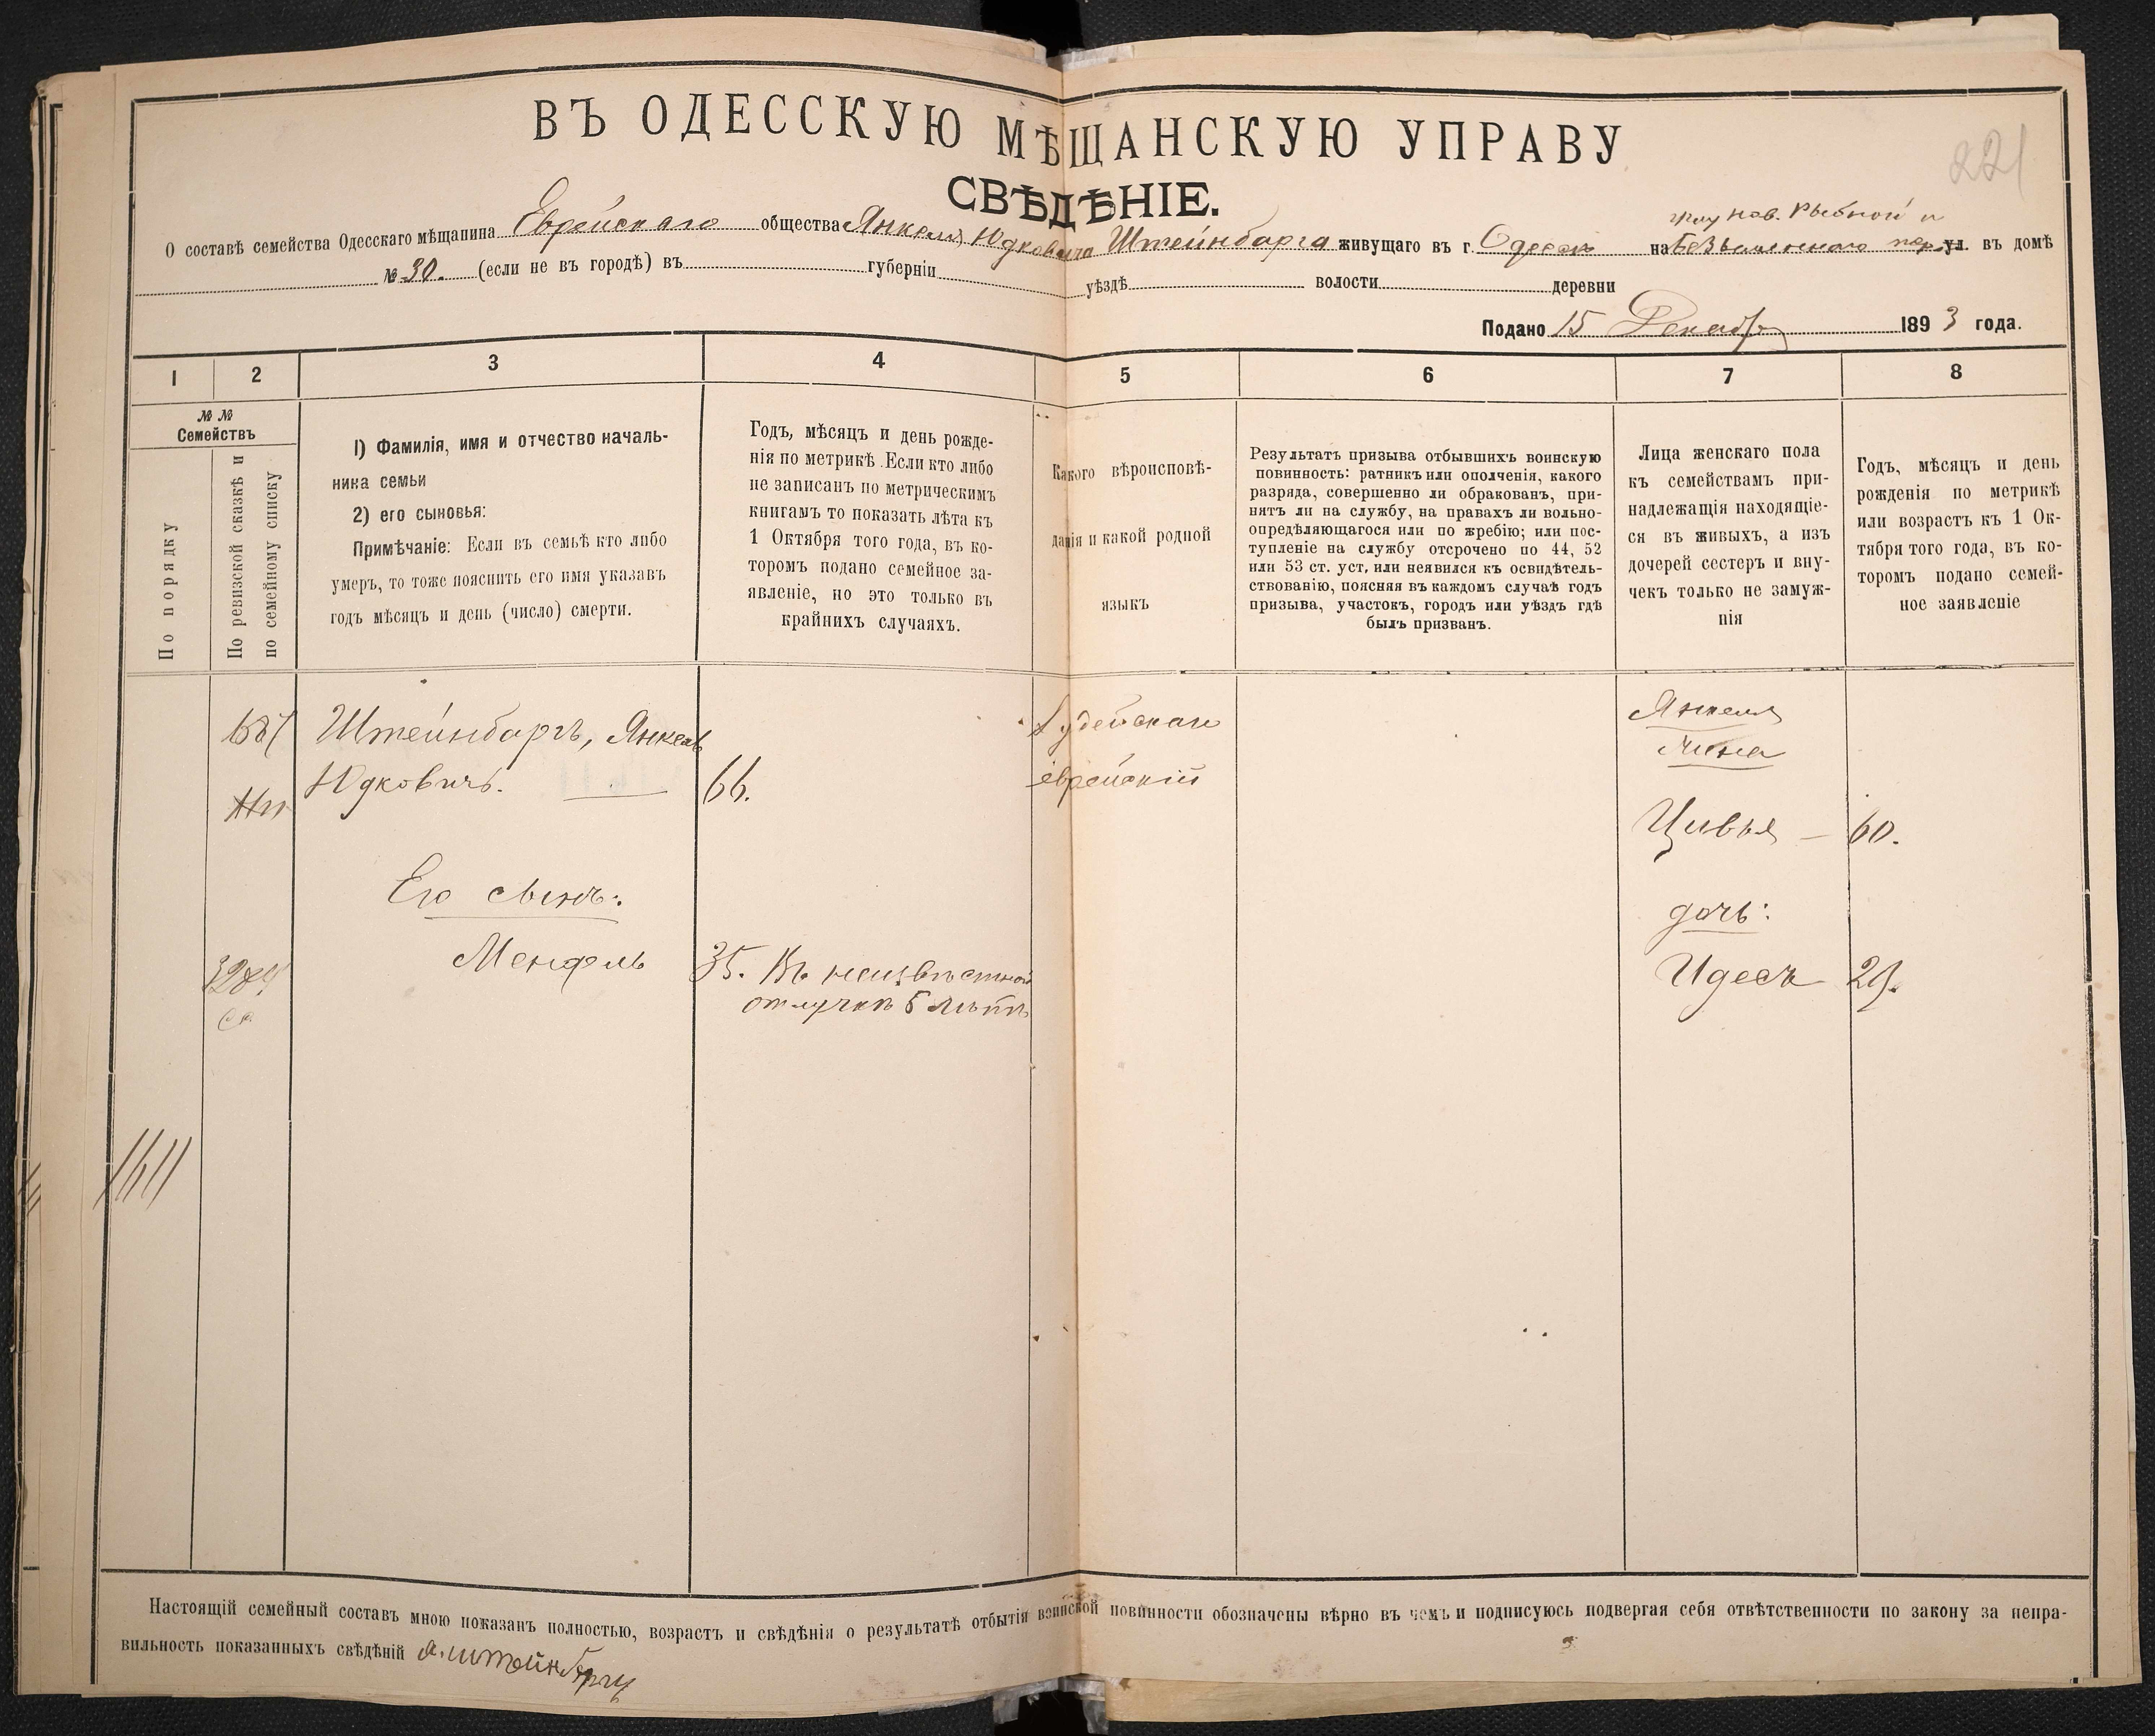 ВЪ ОДЕССКУЮ МѢЩАНСКУЮ УПРАВУ
221
СВѢДѢНІЕ.
нов. Рыбной и
О составѣ семейства Одесскаго мѣщанина Еврейскаго общества Янкеля Юдковича Штейнбарга живущаго въ г. Одессѣ на Безъименнаго пер. ул. въ домѣ
№ 30. (если не въ городѣ) въ губерніи уѣздѣ волости деревни
Подано 15 Декабря 1893 года.
1 2 3 4 5 6 7 8
№ №
Семействъ
По порядку
По ревизской сказкѣ и
по семейному списку
1) Фамилія, имя и отчество началь-
ника семьи
2) его сыновья:
Примѣчаніе: Если въ семьѣ кто либо
умеръ, то тоже пояснить его имя указавъ
годъ мѣсяцъ и день (число) смерти.
Годъ, мѣсяцъ и день рожде-
нія по метрикѣ. Если кто либо
не записанъ по метрическимъ
книгамъ то показать лѣта къ
1 Октября того года, въ ко-
торомъ подано семейное за-
явленіе, но это только въ
крайнихъ случаяхъ.
Какого вѣроисповѣ-
данія и какой родной
языкъ
Результатъ призыва отбывшихъ воинскую
повинность: ратникъ или ополченія, какого
разряда, совершенно ли обракованъ, при-
нятъ ли на службу, на правахъ ли вольно-
опредѣляющагося или по жребію; или пос-
тупленіе на службу отсрочено по 44, 52
или 53 ст. уст, или неявился къ освидѣтель-
ствованію, поясняя въ каждомъ случаѣ годъ
призыва, участокъ, городъ или уѣздъ гдѣ
былъ призванъ.
Лица женскаго пола
къ семействамъ при-
надлежащія находящіе-
ся въ живыхъ, а изъ
дочерей сестеръ и вну-
чекъ только не замуж-
нія
Годъ, мѣсяцъ и день
рожденія по метрикѣ
или возрастъ къ 1 Ок-
тября того года, въ ко-
торомъ подано семей-
ное заявленіе
Штейнбаргъ, Янкель
Юдковичъ. 66.
Іудейская
еврейскій
Янкеля
жена
Цивья 60.
Его сынъ:
дочь:
Мендель 35. Въ неизвѣстной
отлучкѣ 5 лѣтъ
Идесъ 29.
1611
Настоящій семейный составъ мною показанъ полностью, возрастъ и свѣдѣнія о результатѣ отбытія воинской повинности обозначены вѣрно въ чемъ и подписуюсь подвергая себя отвѣтственности по закону за непра-
вильность показанныхъ свѣдѣній Я. Штейнбергъ